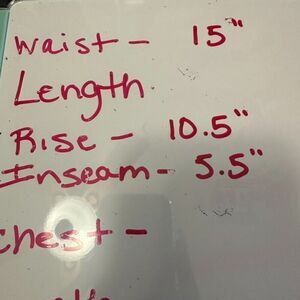 Waist - 15"
Length
Rise - 10.5"
Inseam - 5.5"
chest -